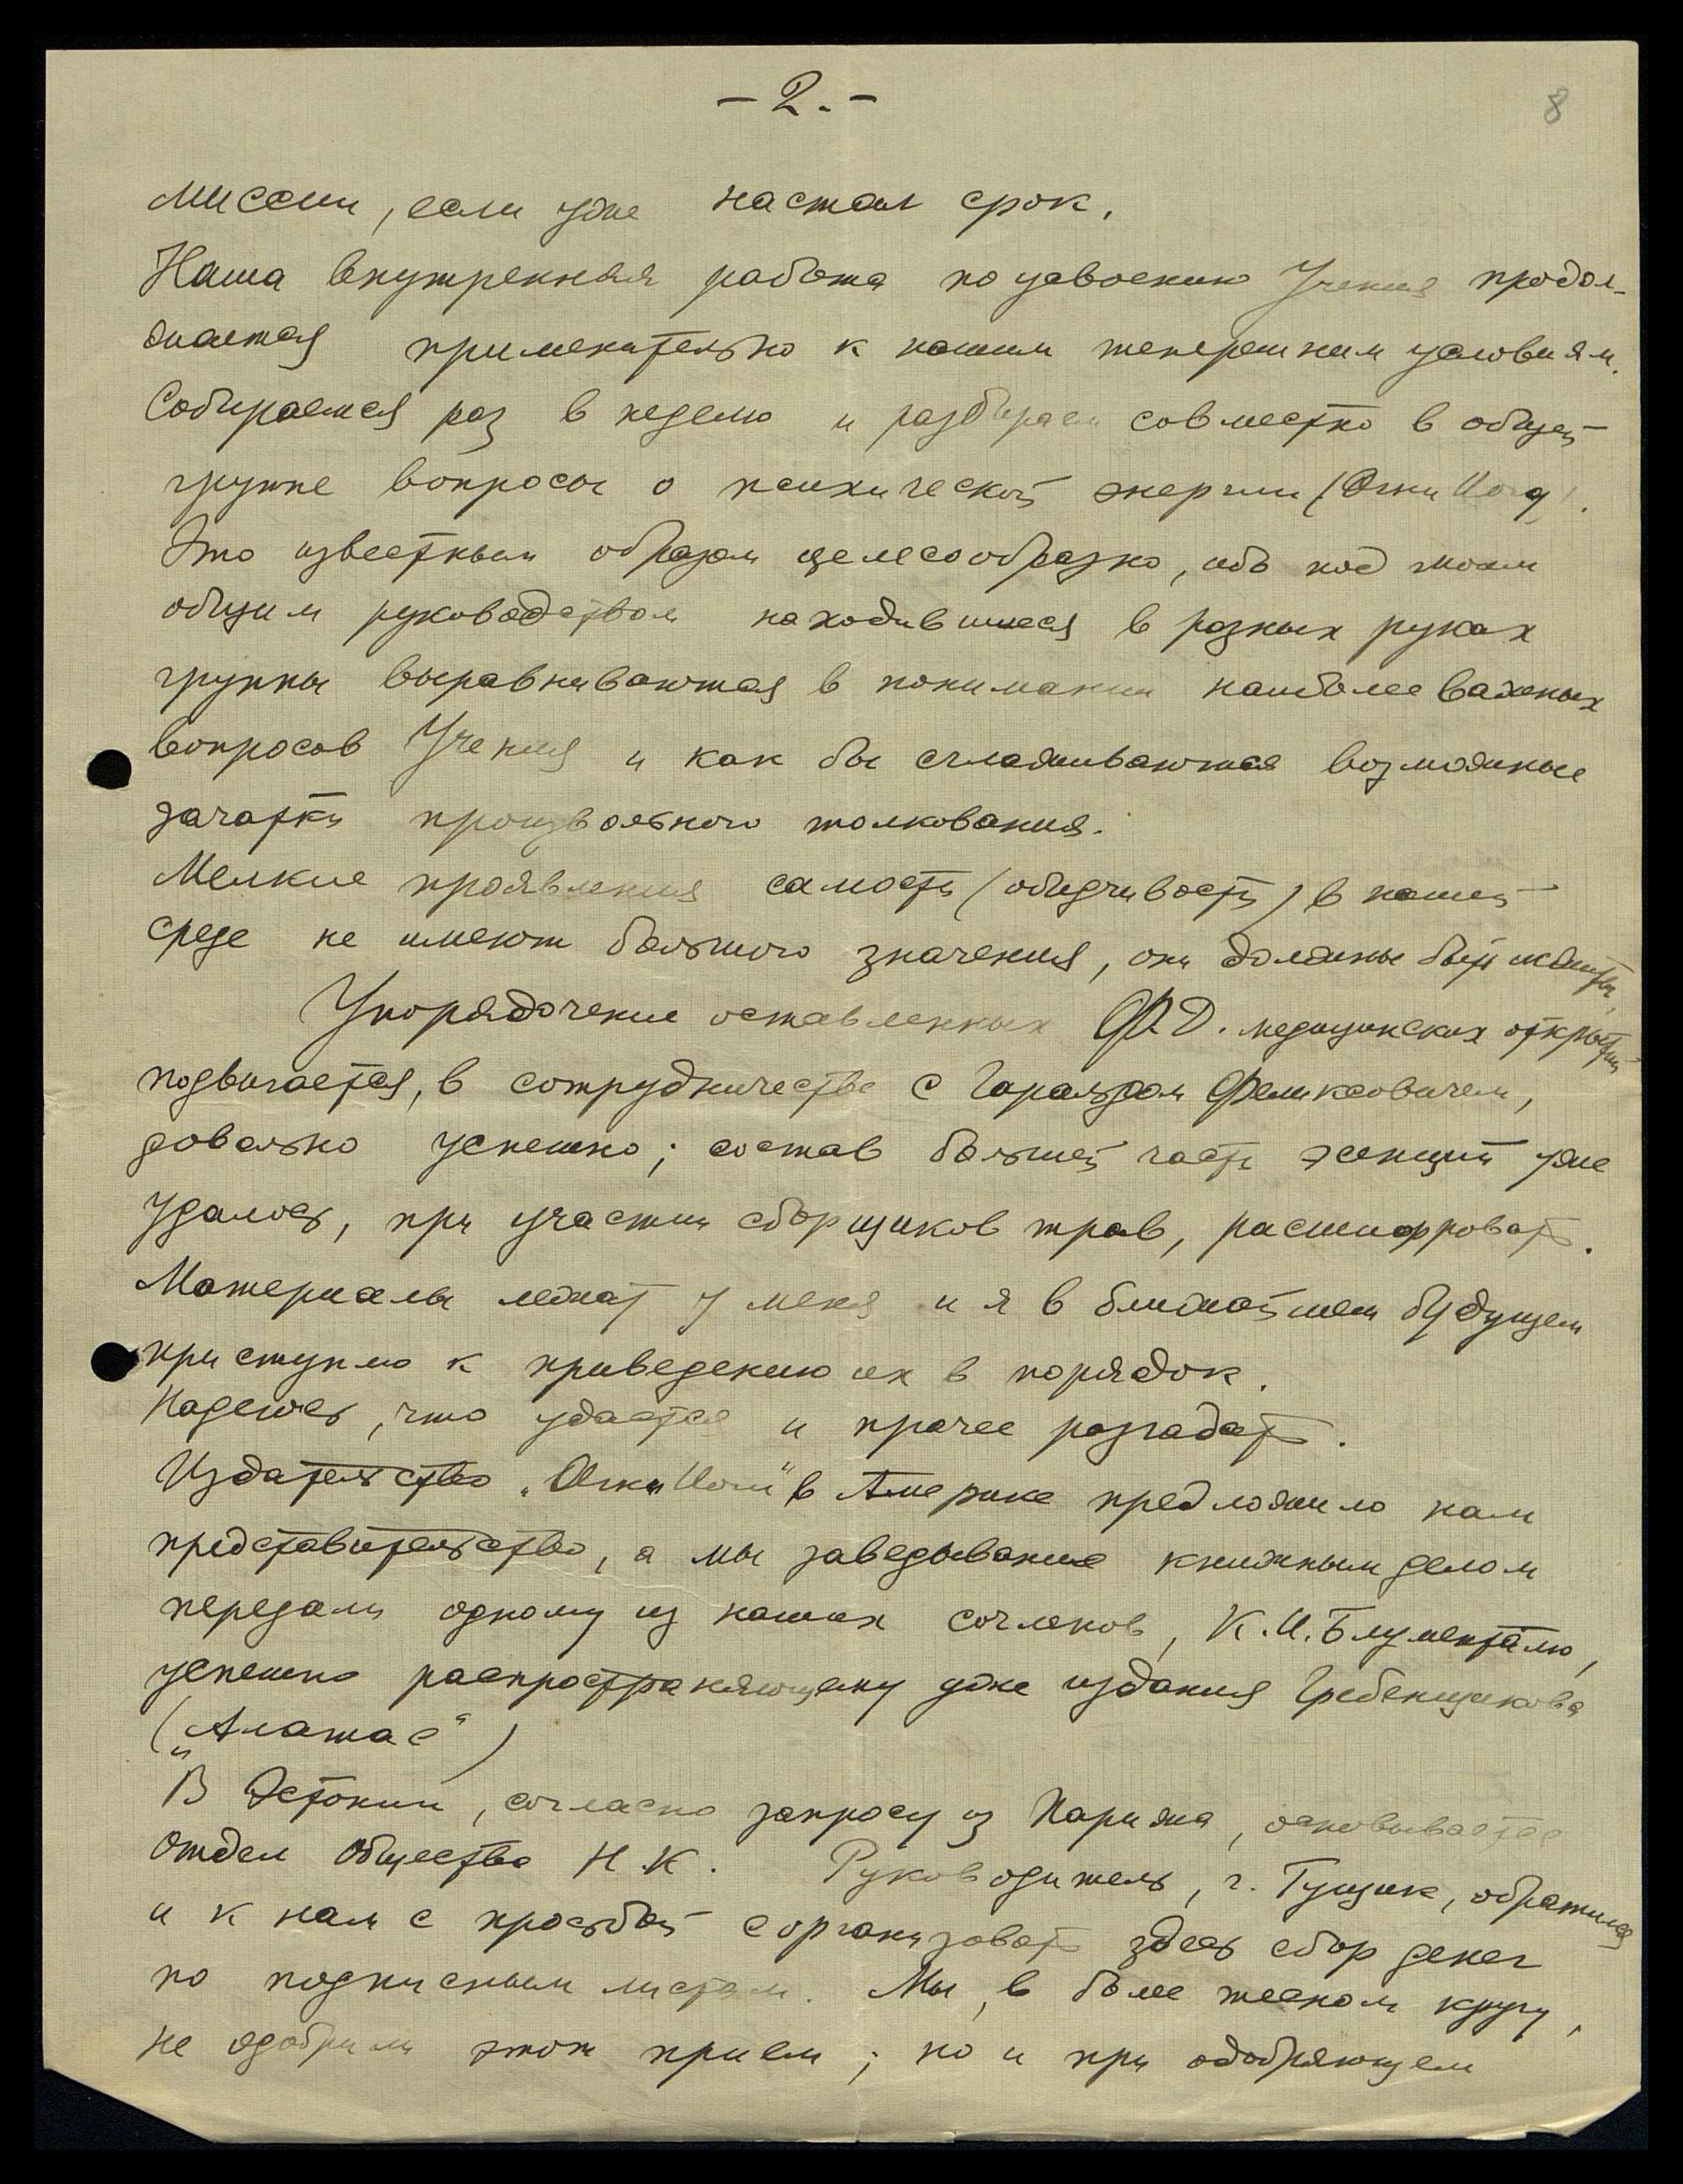 – 2. –
8
миссии, если уже настал срок.
Наша внутренняя работа по усвоению Учения продол-
жается применительно к нашим теперешним условиям.
Собираемся раз в неделю и разбираем совместно в общей
группе вопросы о психической энергии (Огни Йога).
Это известным образом целесообразно, ибо под моим
общим руководством находившиеся в разных руках
группы выравниваются в понимании наиболее важных
вопросов Учения и как бы сглаживаются возможные
зачатки произвольного толкования.
Мелкие проявления самости (обидчивости) в нашей
среде не имеют большого значения, они должны быть изжиты.
Упорядочение оставленных Ф.Д. медицинских открытий
подвигается, в сотрудничестве с Гаральдом Феликсовичем,
довольно успешно; состав большей части эсенций уже
удалось, при участии сборщиков трав, расшифровать.
Материалы лежат у меня и я в ближайшем будущем
приступлю к приведению их в порядок.
Надеюсь, что удастся и прочее разгадать.
Издательство „Огни Йоги" в Америке предложило нам
представительство, а мы заведывание книжным делом
передали одному из наших сочленов, К.И. Блументалю,
успешно распространяющему уже издания Гребенщикова
(„Алатас")
В Эстонии, согласно запросу из Парижа, основывается
Отдел Общества Н.К. Руководитель, г. Гущик, обратился
и к нам с просьбой сорганизовать здесь сбор денег
по подписным листам. Мы, в более тесном кругу,
не одобрили этот прием; но и при одобряющем